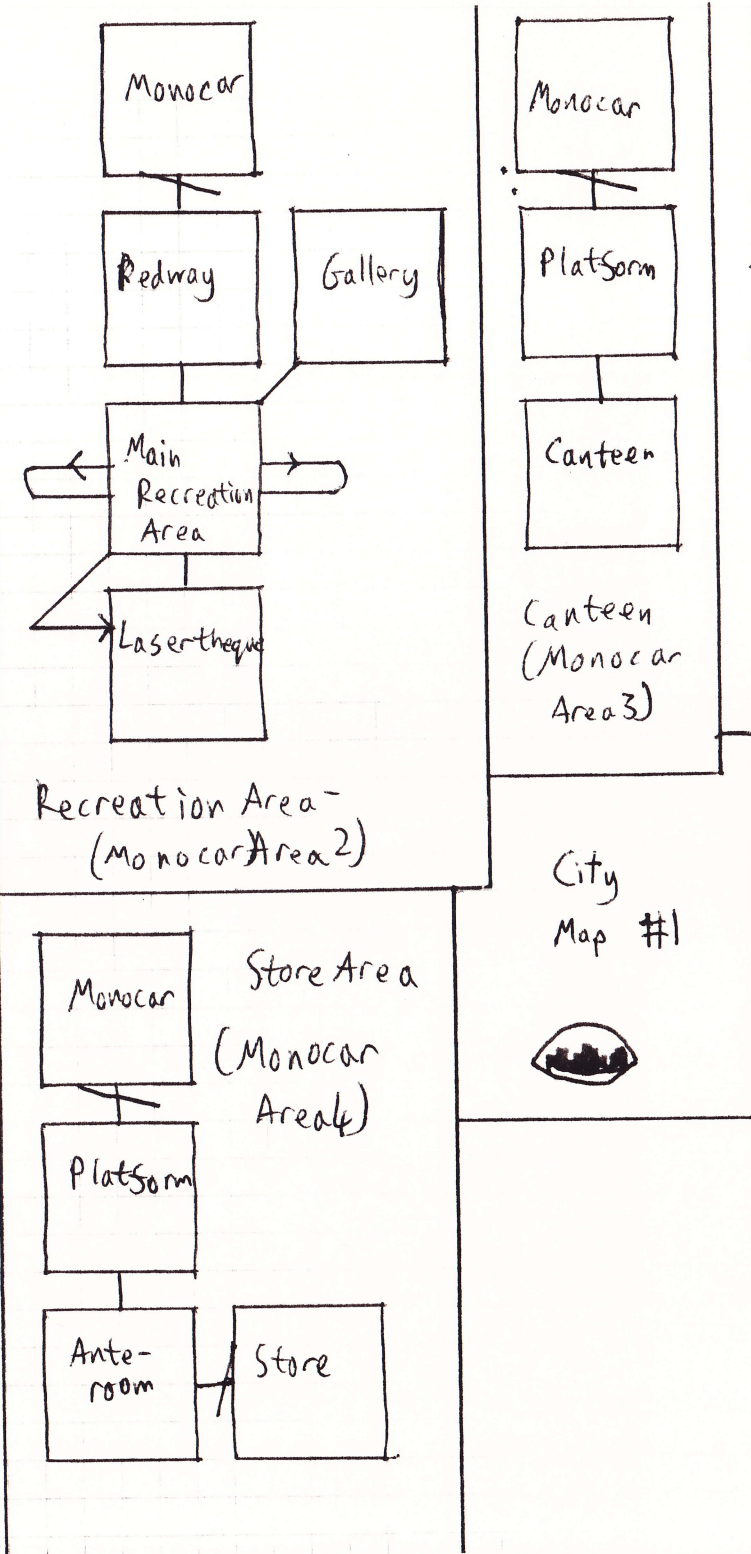 Monocar
Redway
Gallery
Main
Recreation
Area
Lasertheque
Recreation Area-
(Monocar Area 2)
Monocar
Platform
Canteen
Canteen
(Monocar
Area 3)
City
Map #1
Monocar
Store Area
(Monocar
Area 4)
Platform
Ante-
room
Store